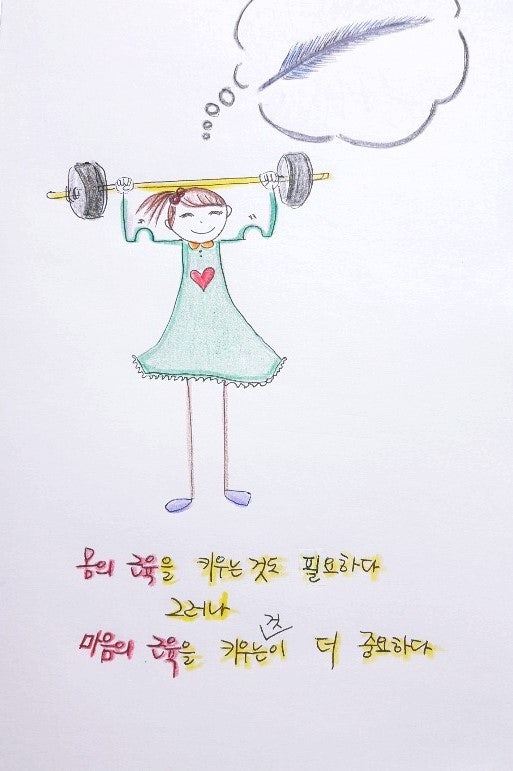 몸의 근육을 키우는 것도 필요하다
그러나
마음의 근육을 키우는것이 더 중요하다